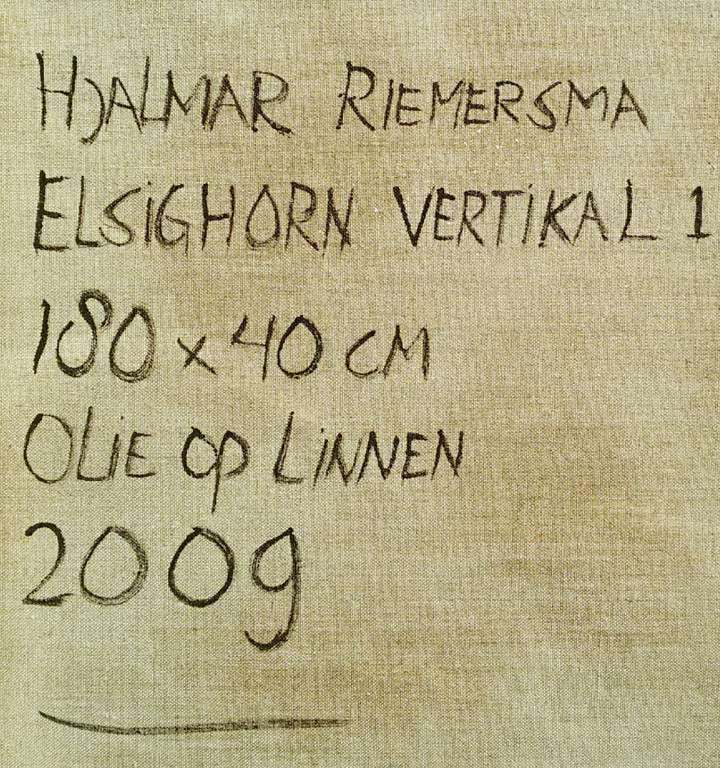 HJALMAR RIEMERSMA
ELSiGHORN VERTiKAL 1
180 x 40 CM
OLiE OP LiNNEN
2009